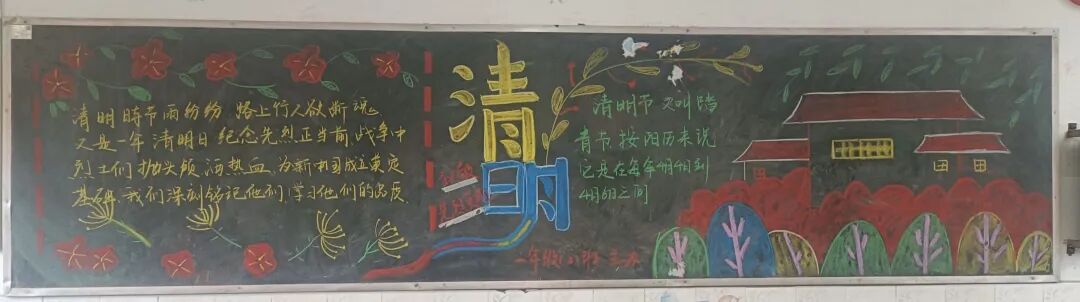 清明时节雨纷纷 路上行人欲断魂
又是一年清明日 纪念先烈正当前,战争中
烈士们抛头颅洒热血,为新中国成立奠定
基础.我们深刻铭记他们,学习他们的品质.
清
明
清明节 又叫踏
青节按阳历来说
它是在每年4月4日到
4月6日之间
一年级 班 主办